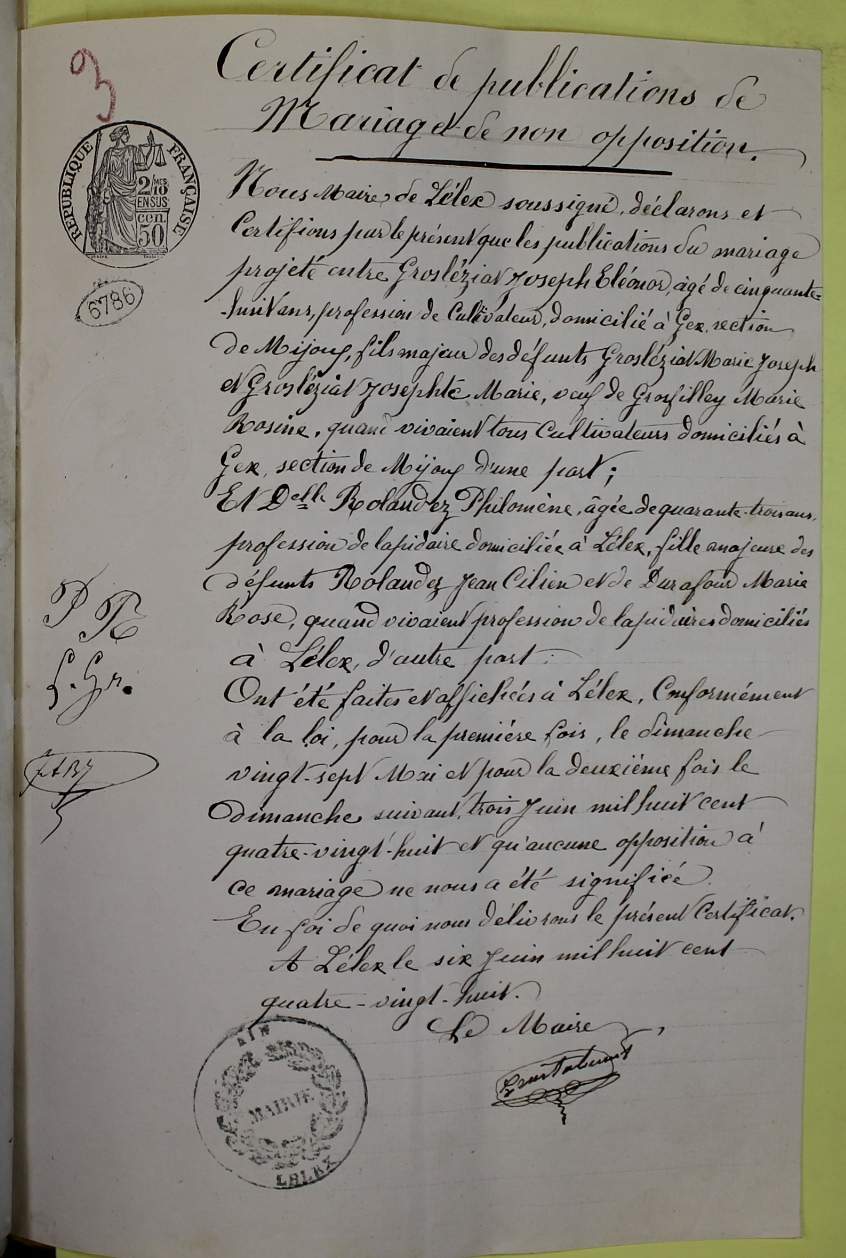 3
Certificat de publications de
Mariage de non opposition.
RÉPUBLIQUE FRANÇAISE
2/10MES
EN SUS
50 cen.
6786
Nous Maire de Lélex soussigné, déclarons et
Certifions par le présent que les publications du mariage
projeté entre Grosléziat Joseph Eléonor, âgé de cinquante-
-huit ans, profession de Cultivateur, domicilié à Gex, section
de Mijoux, fils majeur des défunts Grosléziat Marie Joseph
et Grosléziat Josephte Marie, veuf de Grosfilley Marie
Rosine, quand vivaient tous Cultivateurs domiciliés à
Gex, section de Mijoux d'une part;
Et Delle Rolandez Philomène, âgée de quarante-trois ans,
profession de lapidaire domiciliée à Lélex, fille majeure des
défunts Rolandez Jean Cilien et de Durafour Marie
Rose, quand vivaient profession de lapidaires domiciliés
à Lélex, d'autre part:
Ont été faites et affichées à Lélex, Conformément
à la loi, pour la première fois, le dimanche
vingt-sept Mai et pour la deuxième fois le
dimanche suivant, trois Juin mil huit cent
quatre-vingt-huit et qu'aucune opposition à
ce mariage ne nous a été signifiée.
En foi de quoi nous délivrons le présent Certificat.
A Lélex le six Juin mil huit cent
quatre-vingt-huit.
Le Maire
P R
AIN
MAIRIE
LELEX